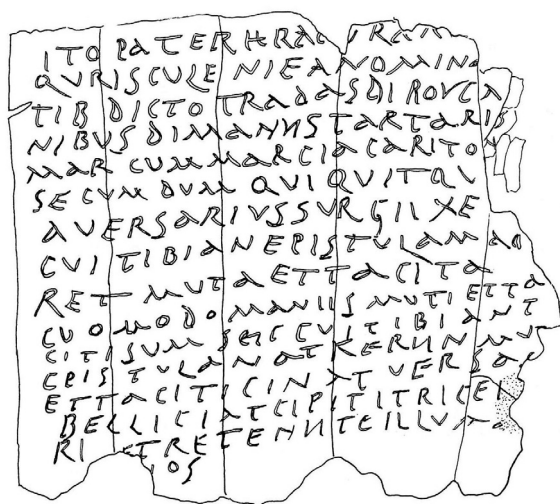 ITO PATER HRACURA
QVRISCULENIEANOMINA
TIB DICTO TRADAS DIROVCA
NIBUS DIMANNS TARTARIB
MAR CUMMARCIACARITO
SECUMDUM QUIQUITQU
AVERSARIVSSURGIIXE
CVITIBIANEPISTULAMDA
RET MUTAETTACITA
CUOMODO MANIIS MUTIETTA
CITISUM SIIC CUITIBIANT
EPISTULANATKERUNMU
ETTACITICINAT VERSAE
BELLICIATCIPITITRICEI
TRETENNTEILLUTA
OS